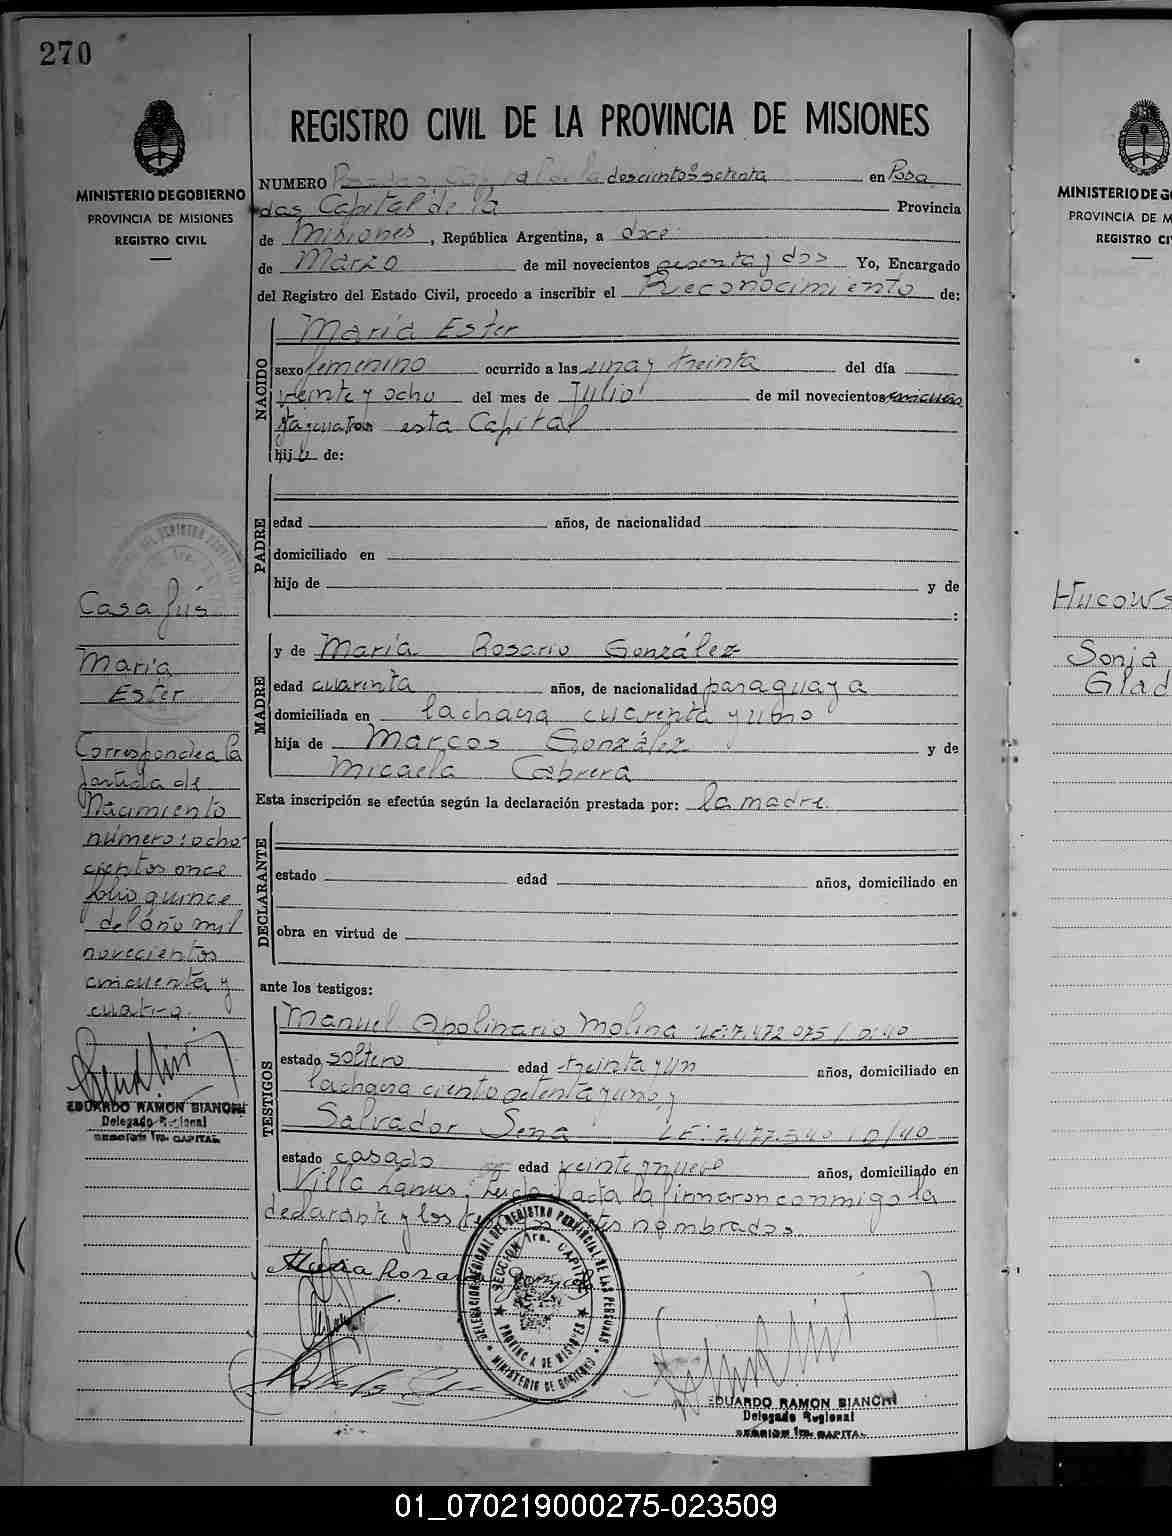 270
MINISTERIO DE GOBIERNO
PROVINCIA DE MISIONES
REGISTRO CIVIL
REGISTRO CIVIL DE LA PROVINCIA DE MISIONES
NUMERO doscientos setenta en Posa
das Capital de la Provincia
de Misiones, República Argentina, a doce
de Marzo de mil novecientos sesenta y dos Yo, Encargado
del Registro del Estado Civil, procedo a inscribir el Reconocimiento de:
NACIDO
María Ester
sexo femenino ocurrido a las una y treinta del día
veinte y ocho del mes de Julio de mil novecientos cincuen
ta y cuatro en esta Capital
hija de:
PADRE
edad años, de nacionalidad
domiciliado en
hijo de y de
:
MADRE
y de María Rosario González
edad cuarenta años, de nacionalidad paraguaya
domiciliada en la chacra cuarenta y uno
hija de Marcos González y de
Micaela Cabrera
Esta inscripción se efectúa según la declaración prestada por: la madre.
DECLARANTE
estado edad años, domiciliado en
obra en virtud de
ante los testigos:
TESTIGOS
Manuel Apolinario Molina LE: 7.472.075 / D: 40
estado soltero edad treinta y un años, domiciliado en
la chacra ciento setenta y uno, y
Salvador Sena LE: 7.477.540 D/40
estado casado edad veinte y nueve años, domiciliado en
Villa Lanus; Leida el acta la firmaron conmigo la
declarante y los testigos nombrados.
Maria Rosario
DELEGACION REGIONAL DEL REGISTRO PROVINCIAL DE LAS PERSONAS
SECCION 1ra. CAPITAL
PROVINCIA DE MISIONES
MINISTERIO DE GOBIERNO
EDUARDO RAMON BIANCHI
Delegado Regional
SECCION 1ra. CAPITAL
Casafús
María
Ester
Corresponde a la
partida de
Nacimiento
número: ocho-
cientos once
folio quince
del año mil
novecientos
cincuenta y
cuatro.
EDUARDO RAMON BIANCHI
Delegado Regional
SECCION 1ra. CAPITAL
MINISTERIO DE G
PROVINCIA DE M
REGISTRO CI
Sonja
Glad
01_070219000275-023509